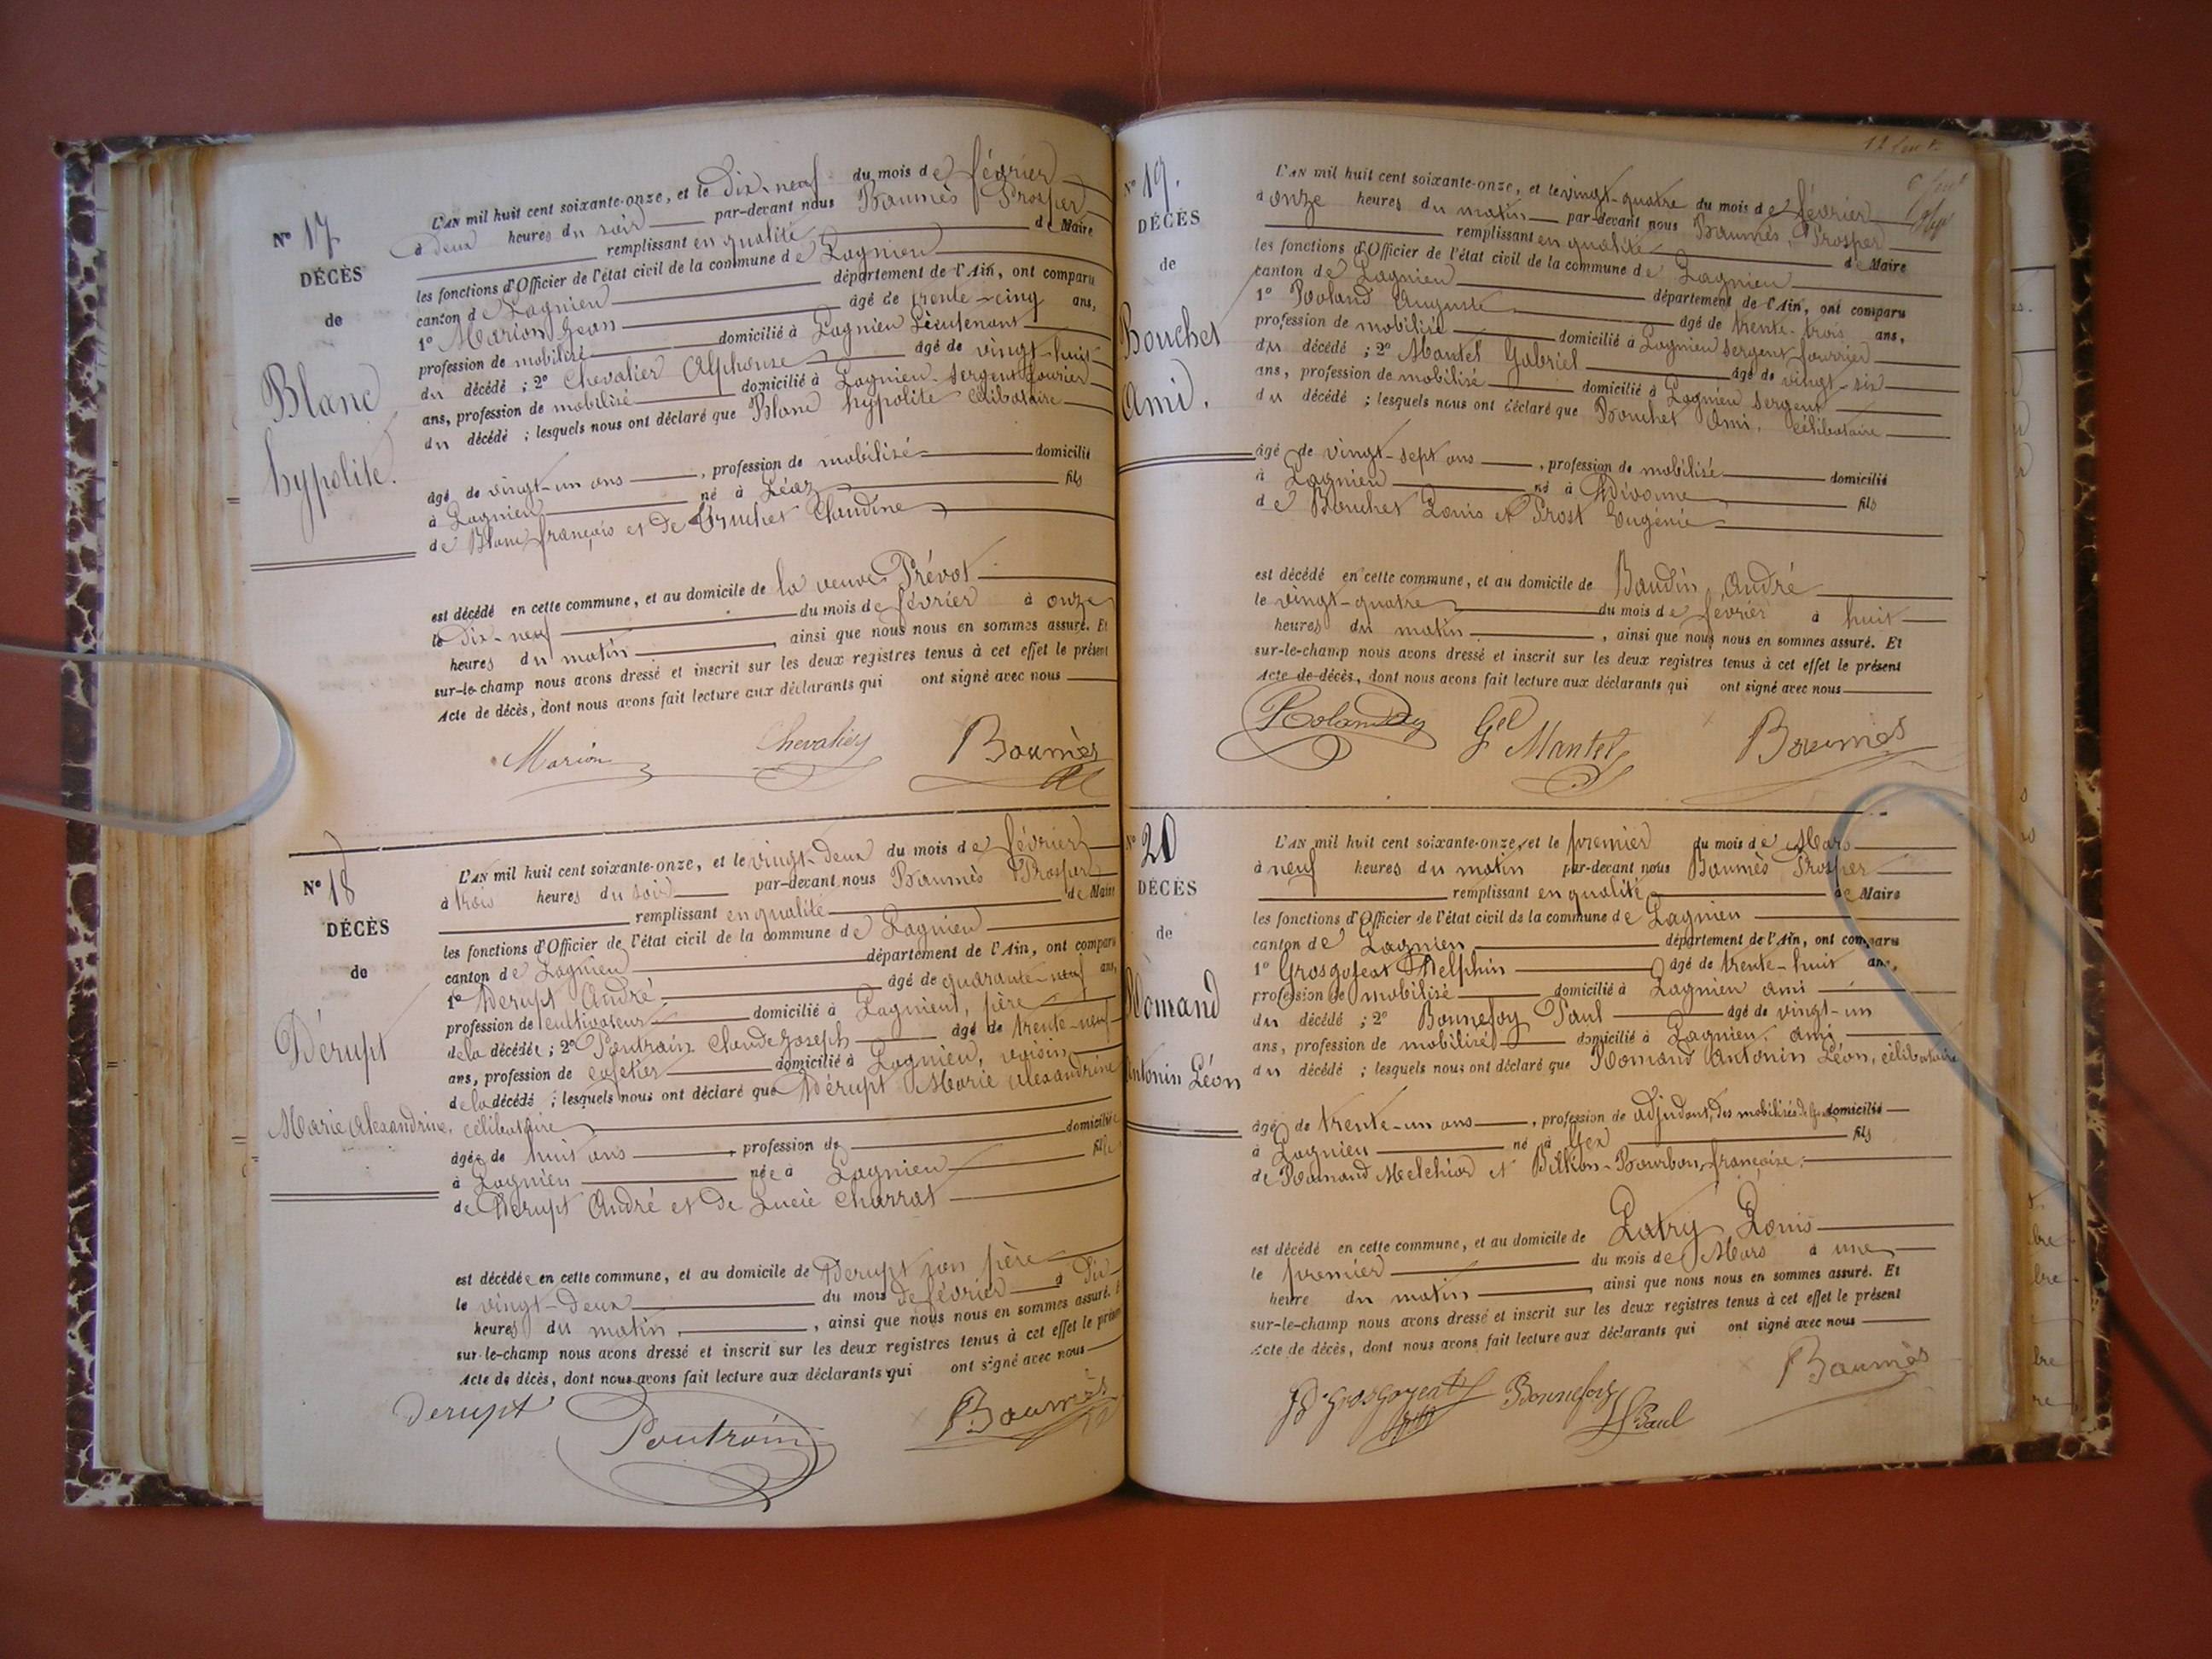 Nº 17
DÉCÈS
de
Blanc
hypolite.
L'AN mil huit cent soixante-onze, et le dix-neuf du mois de février
à deux heures du soir par-devant nous Baumès Prosper
remplissant en qualité de Maire
les fonctions d'Officier de l'état civil de la commune de Lagnieu
canton de Lagnieu département de l'Ain, ont comparu
1º Marion Jean âgé de trente-cinq ans,
profession de mobilisé domicilié à Lagnieu Lieutenant
du décédé ; 2º Chevalier Alphonse âgé de vingt-huit
ans, profession de mobilisé domicilié à Lagnieu, sergent fourier
du décédé ; lesquels nous ont déclaré que Blanc hypolite célibataire
âgé de vingt-un ans, profession de mobilisé domicilié
à Lagnieu né à Léaz fils
de Blanc françois et de Truchet Claudine
est décédé en cette commune, et au domicile de la veuve Prévot
le dix-neuf du mois de février à onze
heures du matin, ainsi que nous nous en sommes assuré. Et
sur-le-champ nous avons dressé et inscrit sur les deux registres tenus à cet effet le présent
Acte de décès, dont nous avons fait lecture aux déclarants qui ont signé avec nous
Marion Chevalier Baumès
Nº 18
DÉCÈS
de
Dérupt
Marie Alexandrine.
L'AN mil huit cent soixante-onze, et le vingt-deux du mois de février
à trois heures du soir par-devant nous Baumès Prosper
remplissant en qualité de Maire
les fonctions d'Officier de l'état civil de la commune de Lagnieu
canton de Lagnieu département de l'Ain, ont comparu
1º Derupt André âgé de quarante-neuf ans,
profession de cultivateur domicilié à Lagnieut, père
de la décédée ; 2º Poutrain Claude Joseph âgé de trente-neuf
ans, profession de cafetier domicilié à Lagnieu, voisin
de la décédé ; lesquels nous ont déclaré que Dérupt Marie Alexandrine
célibataire
âgée de huit ans, profession de domiciliée
à Lagnieu née à Lagnieu fille
de Derupt André et de Lucie Charrat
est décédée en cette commune, et au domicile de Derupt son père
le vingt-deux du mois de février à dix
heures du matin, ainsi que nous nous en sommes assuré. Et
sur-le-champ nous avons dressé et inscrit sur les deux registres tenus à cet effet le présent
Acte de décès, dont nous avons fait lecture aux déclarants qui ont signé avec nous
Derupt Poutrain Baumès
Nº 19.
DÉCÈS
de
Bouchet
Ami.
L'AN mil huit cent soixante-onze, et le vingt-quatre du mois de février
à onze heures du matin par-devant nous Baumès Prosper
remplissant en qualité de Maire
les fonctions d'Officier de l'état civil de la commune de Lagnieu
canton de Lagnieu département de l'Ain, ont comparu
1º Roland Auguste âgé de trente-trois ans,
profession de mobilisé domicilié à Lagnieu sergent fourrier
du décédé ; 2º Mantel Gabriel âgé de vingt-six
ans, profession de mobilisé domicilié à Lagnieu sergent
du décédé ; lesquels nous ont déclaré que Bouchet Ami, célibataire
âgé de vingt-sept ans, profession de mobilisé domicilié
à Lagnieu né à Divonne fils
de Bouchet Louis et Prost Eugénie
est décédé en cette commune, et au domicile de Baudin André
le vingt-quatre du mois de février à huit
heures du matin, ainsi que nous nous en sommes assuré. Et
sur-le-champ nous avons dressé et inscrit sur les deux registres tenus à cet effet le présent
Acte de décès, dont nous avons fait lecture aux déclarants qui ont signé avec nous
Roland Gel Mantel Baumès
Nº 20
DÉCÈS
de
Romand
Antonin Léon
L'AN mil huit cent soixante-onze, et le premier du mois de Mars
à neuf heures du matin par-devant nous Baumès Prosper
remplissant en qualité de Maire
les fonctions d'Officier de l'état civil de la commune de Lagnieu
canton de Lagnieu département de l'Ain, ont comparu
1º Grosgojeat Delphin âgé de trente-huit ans,
profession de mobilisé domicilié à Lagnieu ami
du décédé ; 2º Bonnefoy Paul âgé de vingt-un
ans, profession de mobilisé domicilié à Lagnieu, ami
du décédé ; lesquels nous ont déclaré que Romand Antonin Léon, célibataire
âgé de trente-un ans, profession de adjudant des mobilisés de Gex domicilié
à Lagnieu né à Gex fils
de Romand Melchior et Bourbon françoise
est décédé en cette commune, et au domicile de Latry Louis
le premier du mois de Mars à une
heure du matin, ainsi que nous nous en sommes assuré. Et
sur-le-champ nous avons dressé et inscrit sur les deux registres tenus à cet effet le présent
Acte de décès, dont nous avons fait lecture aux déclarants qui ont signé avec nous
Grosgojeat Bonnefoy Paul Baumès